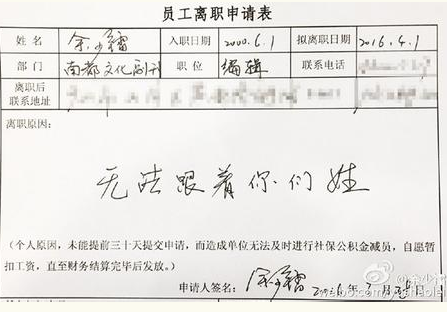 员工离职申请表
姓名 余少镭 入职日期 2000.6.1 拟离职日期 2016.4.1
部门 南都文化副刊 职位 编辑 联系电话
离职后
联系地址
离职原因：
无法跟着你们姓
(个人原因，未能提前三十天提交申请，而造成单位无法及时进行社保公积金减员，自愿暂
扣工资，直至财务结算完毕后发放。)
申请人签名： 余少镭 2016年3月28日